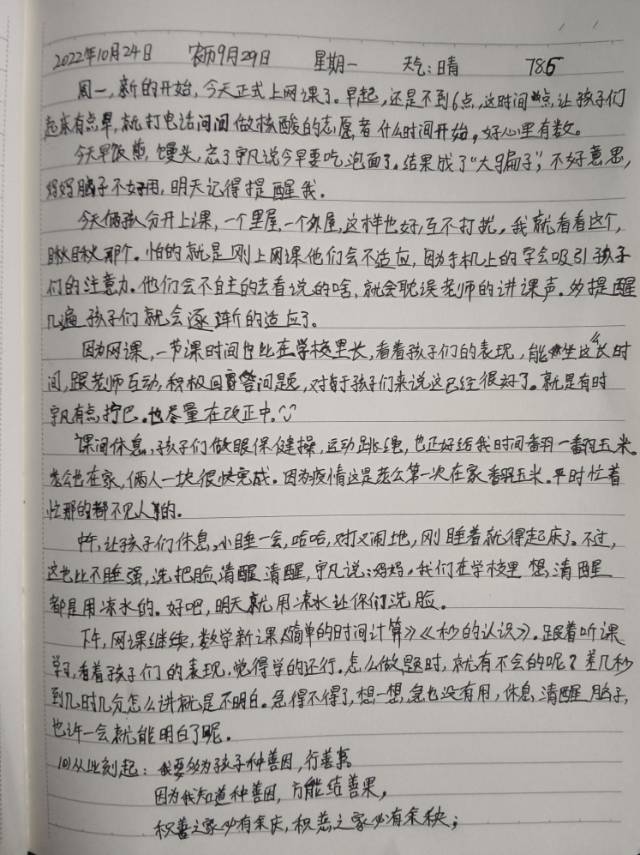 2022年10月24日 农历9月29日 星期一 天气:晴 786
周一,新的开始,今天正式上网课了。早起,还是不到6点,这时间点,让孩子们
起床有点早,就打电话问问做核酸的志愿者什么时间开始,好心里有数。
今天早饭 馒头,忘了宇凡说今早要吃泡面了。结果成了“大骗子”,不好意思,
妈妈脑子不好用,明天记得提醒我。
今天俩孩分开上课,一个里屋,一个外屋,这样也好,互不打扰,我就看看这个,
瞅瞅那个。怕的就是刚上网课他们会不适应,因为手机上的字会吸引孩子
们的注意力。他们会不自主的去看说的啥,就会耽误老师的讲课声。多提醒
几遍孩子们就会逐渐的适应了。
因为网课,一节课时间也比在学校里长,看着孩子们的表现,能坐这么长时
间,跟老师互动,积极回答问题,对于孩子们来说这已经很好了。就是有时
宇凡有点拧巴。也尽量在改正中。
课间休息,孩子们做眼保健操,运动跳绳,也正好给我时间翻一翻玉米。
老公也在家,俩人一块很快完成。因为疫情这是老公第一次在家翻玉米。平时忙着
忙那的都不见人的。
中午,让孩子们休息,小睡一会,哈哈,对打又闹地,刚睡着就得起床了。不过,
这也比不睡强,洗把脸清醒清醒,宇凡说:妈妈,我们在学校里想清醒
都是用凉水的。好吧,明天就用凉水让你们洗脸。
下午,网课继续,数学新课《简单的时间计算》《秒的认识》。跟着听课
学习,看着孩子们的表现,觉得学的还行。怎么做题时,就有不会的呢?差几秒
到几时几分怎么讲就是不明白。急得不得了,想一想,急也没有用,休息,清醒脑子,
也许一会就能明白了呢。
从此刻起:我要多为孩子种善因,行善事。
因为我知道种善因,方能结善果,
积善之家必有余庆,积恶之家必有余殃;